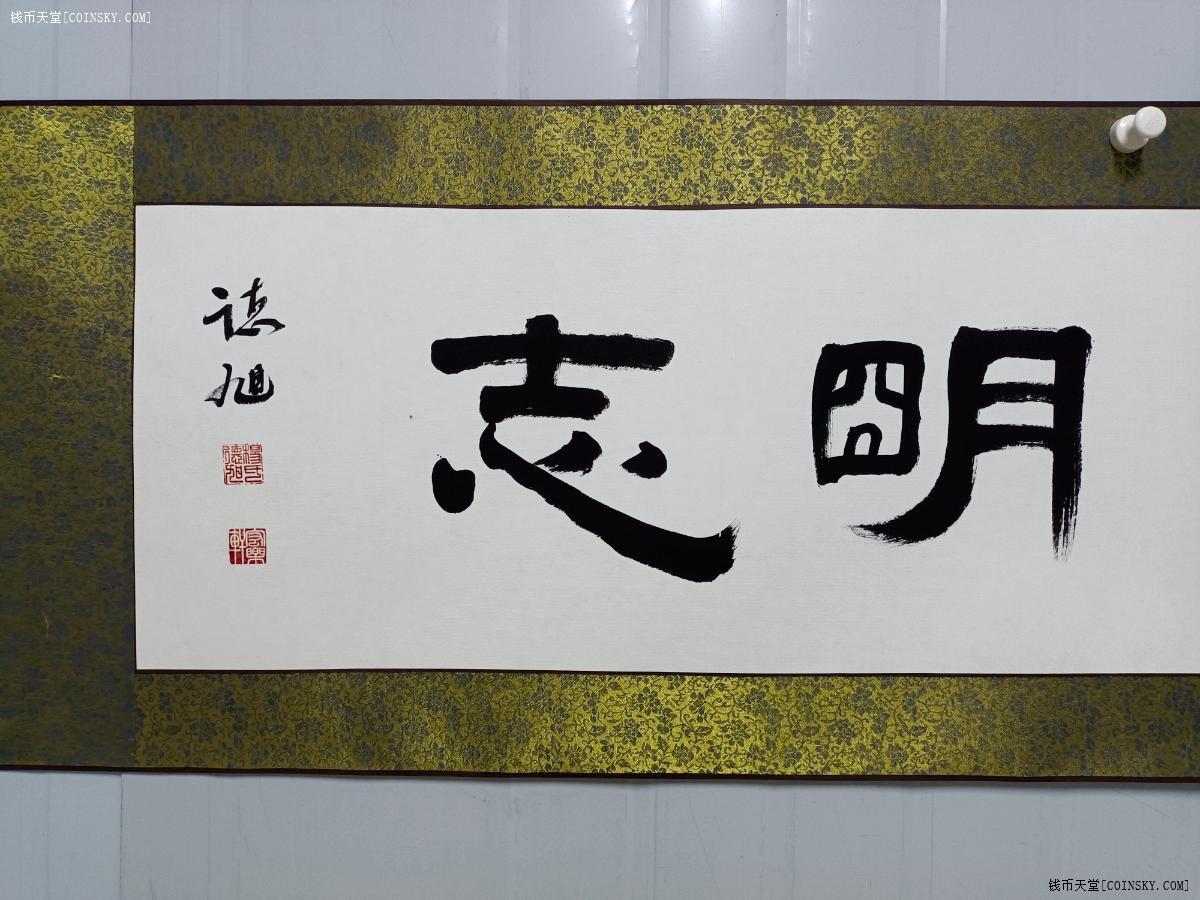 钱币天堂[COINSKY.COM]
朙志
德旭
楊氏德旭
钱币天堂[COINSKY.COM]